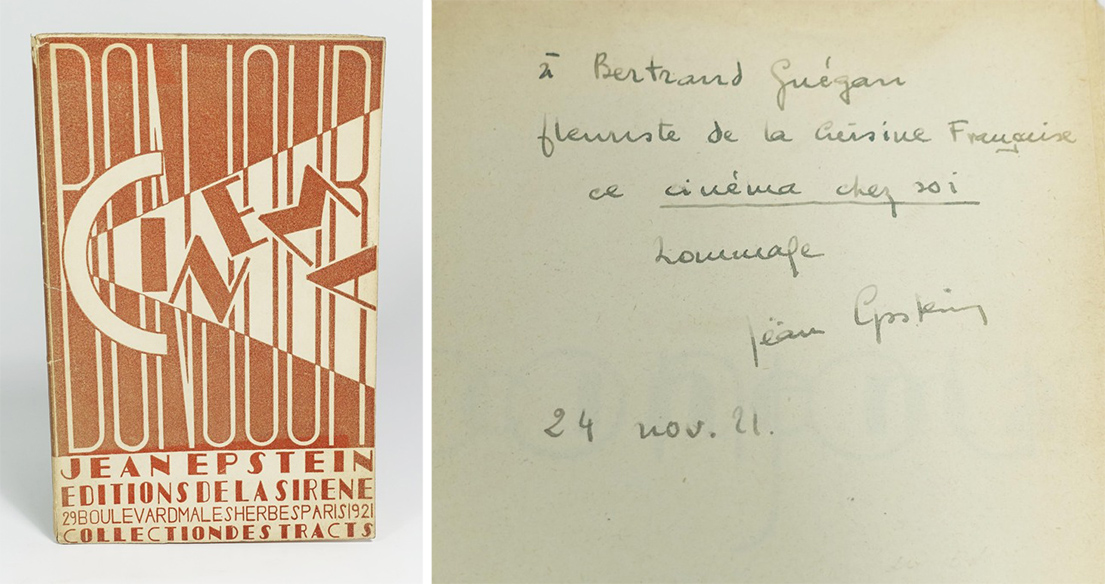 BONJOUR
CINEMA
BONJOUR
JEAN EPSTEIN
EDITIONS DE LA SIRENE
29 BOULEVARD MALESHERBES PARIS 1921
COLLECTION DES TRACTS
à Bertrand Guégan
fleuriste de la Cuisine Française
ce cinéma chez soi
hommage
Jean Epstein
24 nov. 21.